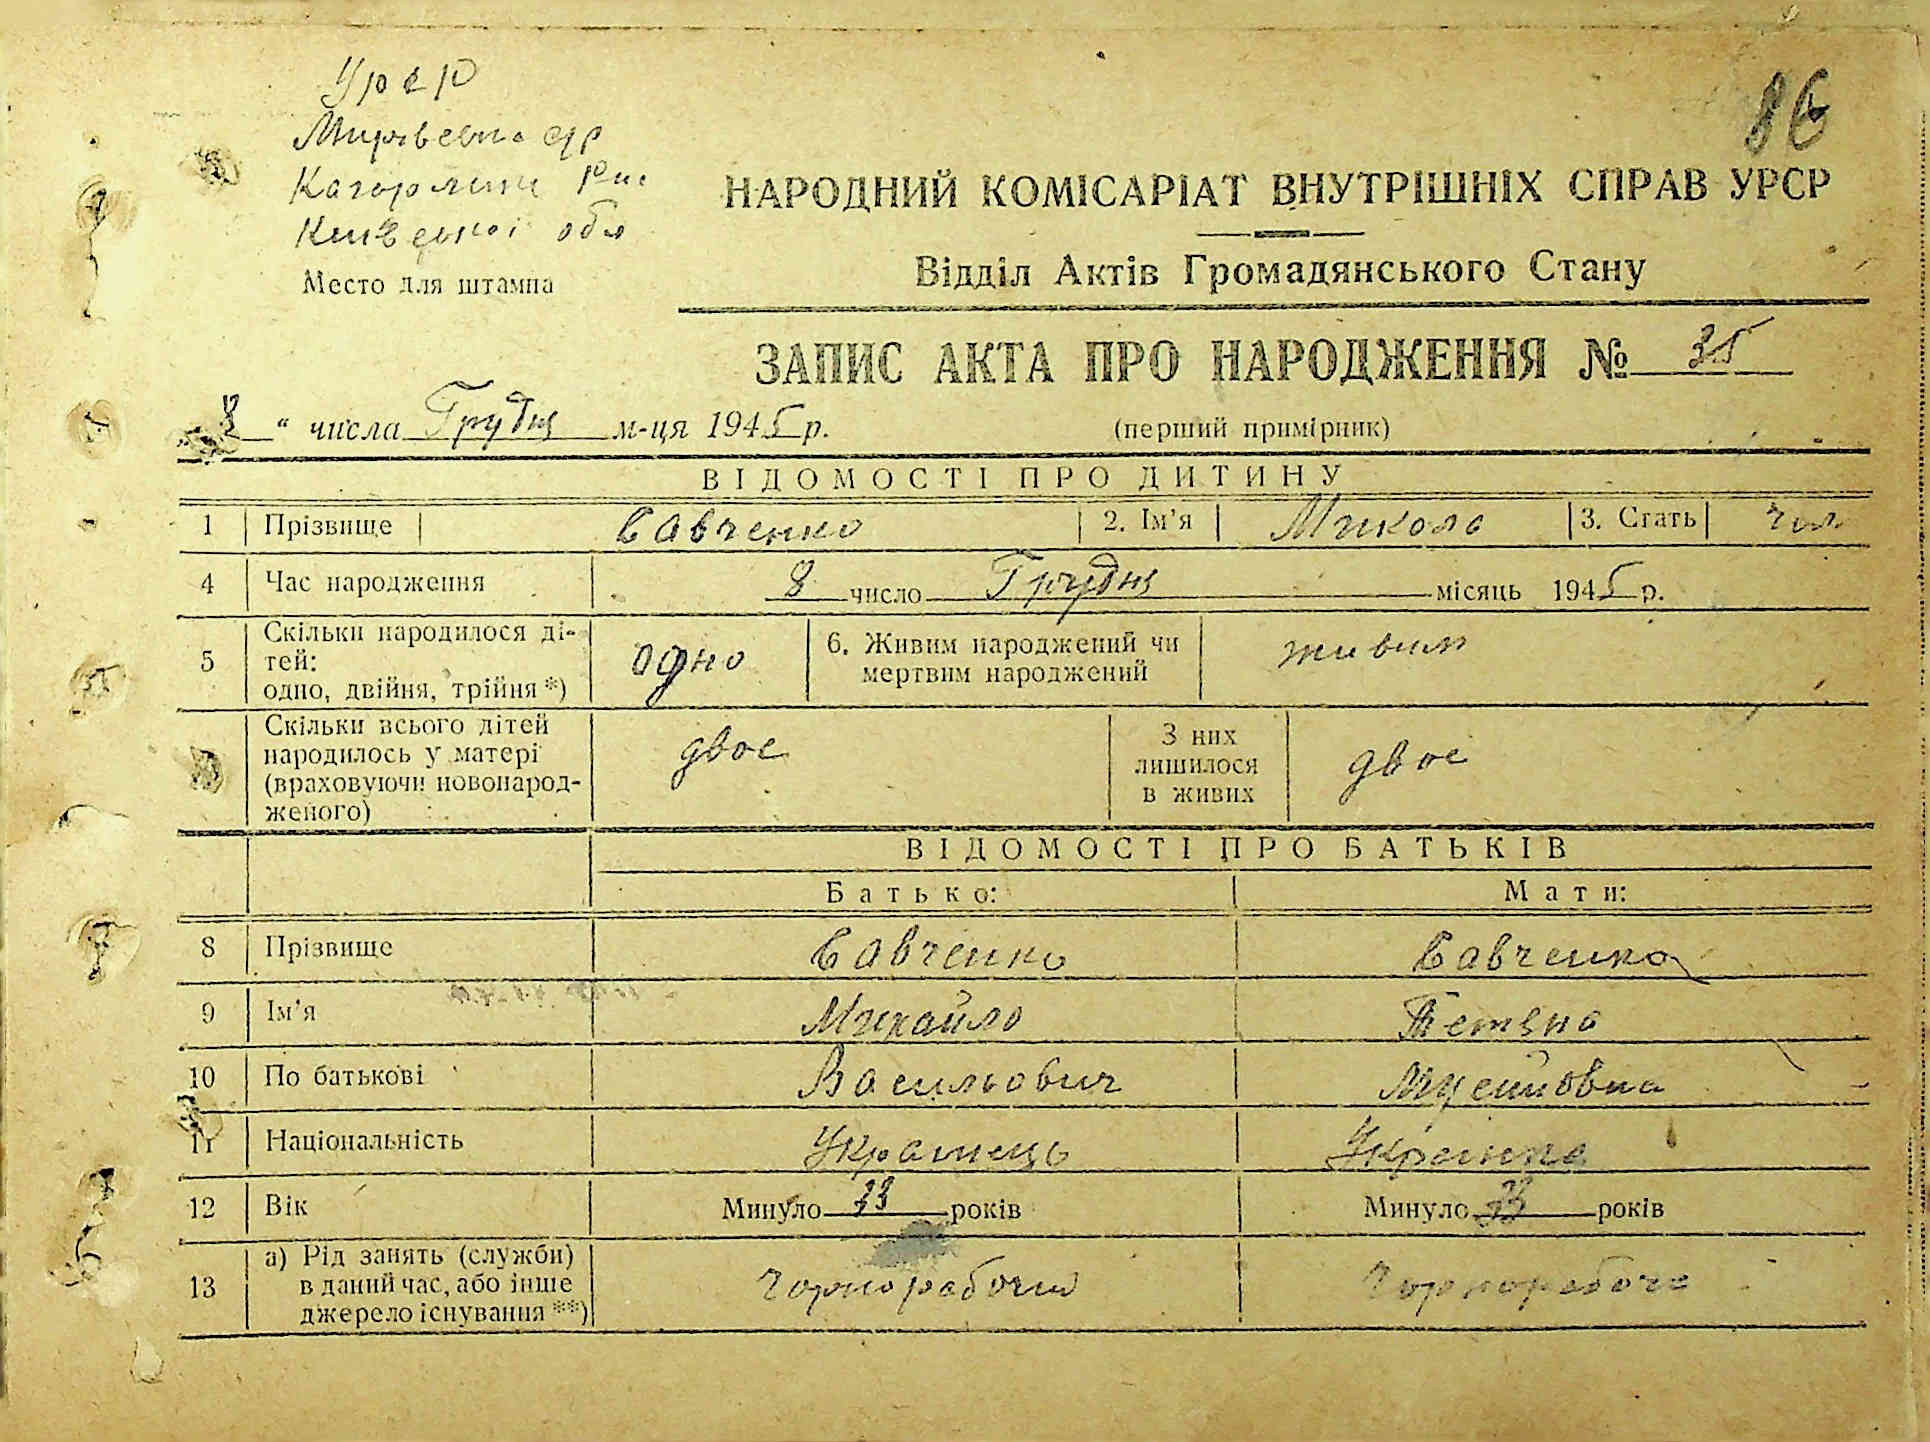 УРСР
86
Кагорлицк р-н.
Київської обл
НАРОДНИЙ КОМІСАРІАТ ВНУТРІШНІХ СПРАВ УРСР
Відділ Актів Громадянського Стану
Место для штампа
ЗАПИС АКТА ПРО НАРОДЖЕННЯ № 35
8 " числа Грудня м-ця 1945 р.
(перший примірник)
ВІДОМОСТІ ПРО ДИТИНУ
1 Прізвище Савченко 2. Ім'я Микола 3. Стать чол
4 Час народження 8 число Грудня місяць 1945 р.
5 Скільки народилося ді-
тей:
одно, двійня, трійня *) одно 6. Живим народжений чи
мертвим народжений живим
Скільки всього дітей
народилось у матері
(враховуючи новонарод-
женого) двоє З них
лишилося
в живих двоє
ВІДОМОСТІ ПРО БАТЬКІВ
Батько: Мати:
8 Прізвище Савченко Савченко
9 Ім'я Михайло Тетяна
10 По батькові Васильович Мусіївна
11 Національність Українець Українка
12 Вік Минуло 33 років Минуло 33 років
13 а) Рід занять (служби)
в даний час, або інше
джерело існування **) Чорнорабочий Чорнорабоча